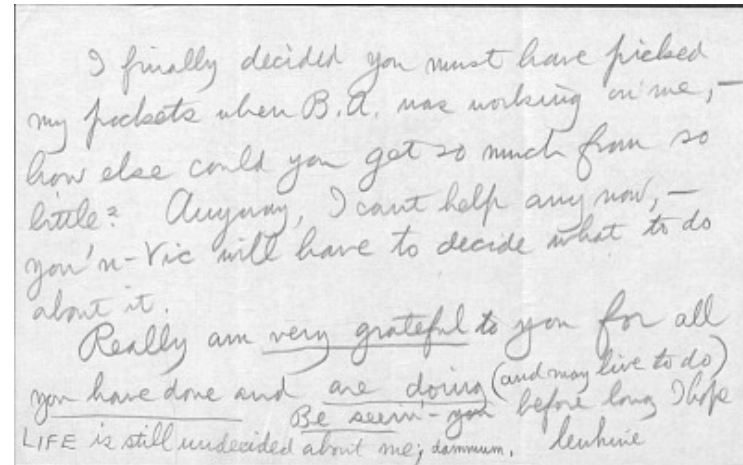 I finally decided you must have picked
my pockets when B.A. was working on me, —
how else could you get so much from so
little? Anyway, I cant help any now, —
you'n-Vic will have to decide what to do
about it.
Really am very grateful to you for all
you have done and are doing (and may live to do)
Be seein'-you before long I hope
LIFE is still undecided about me; dammum.